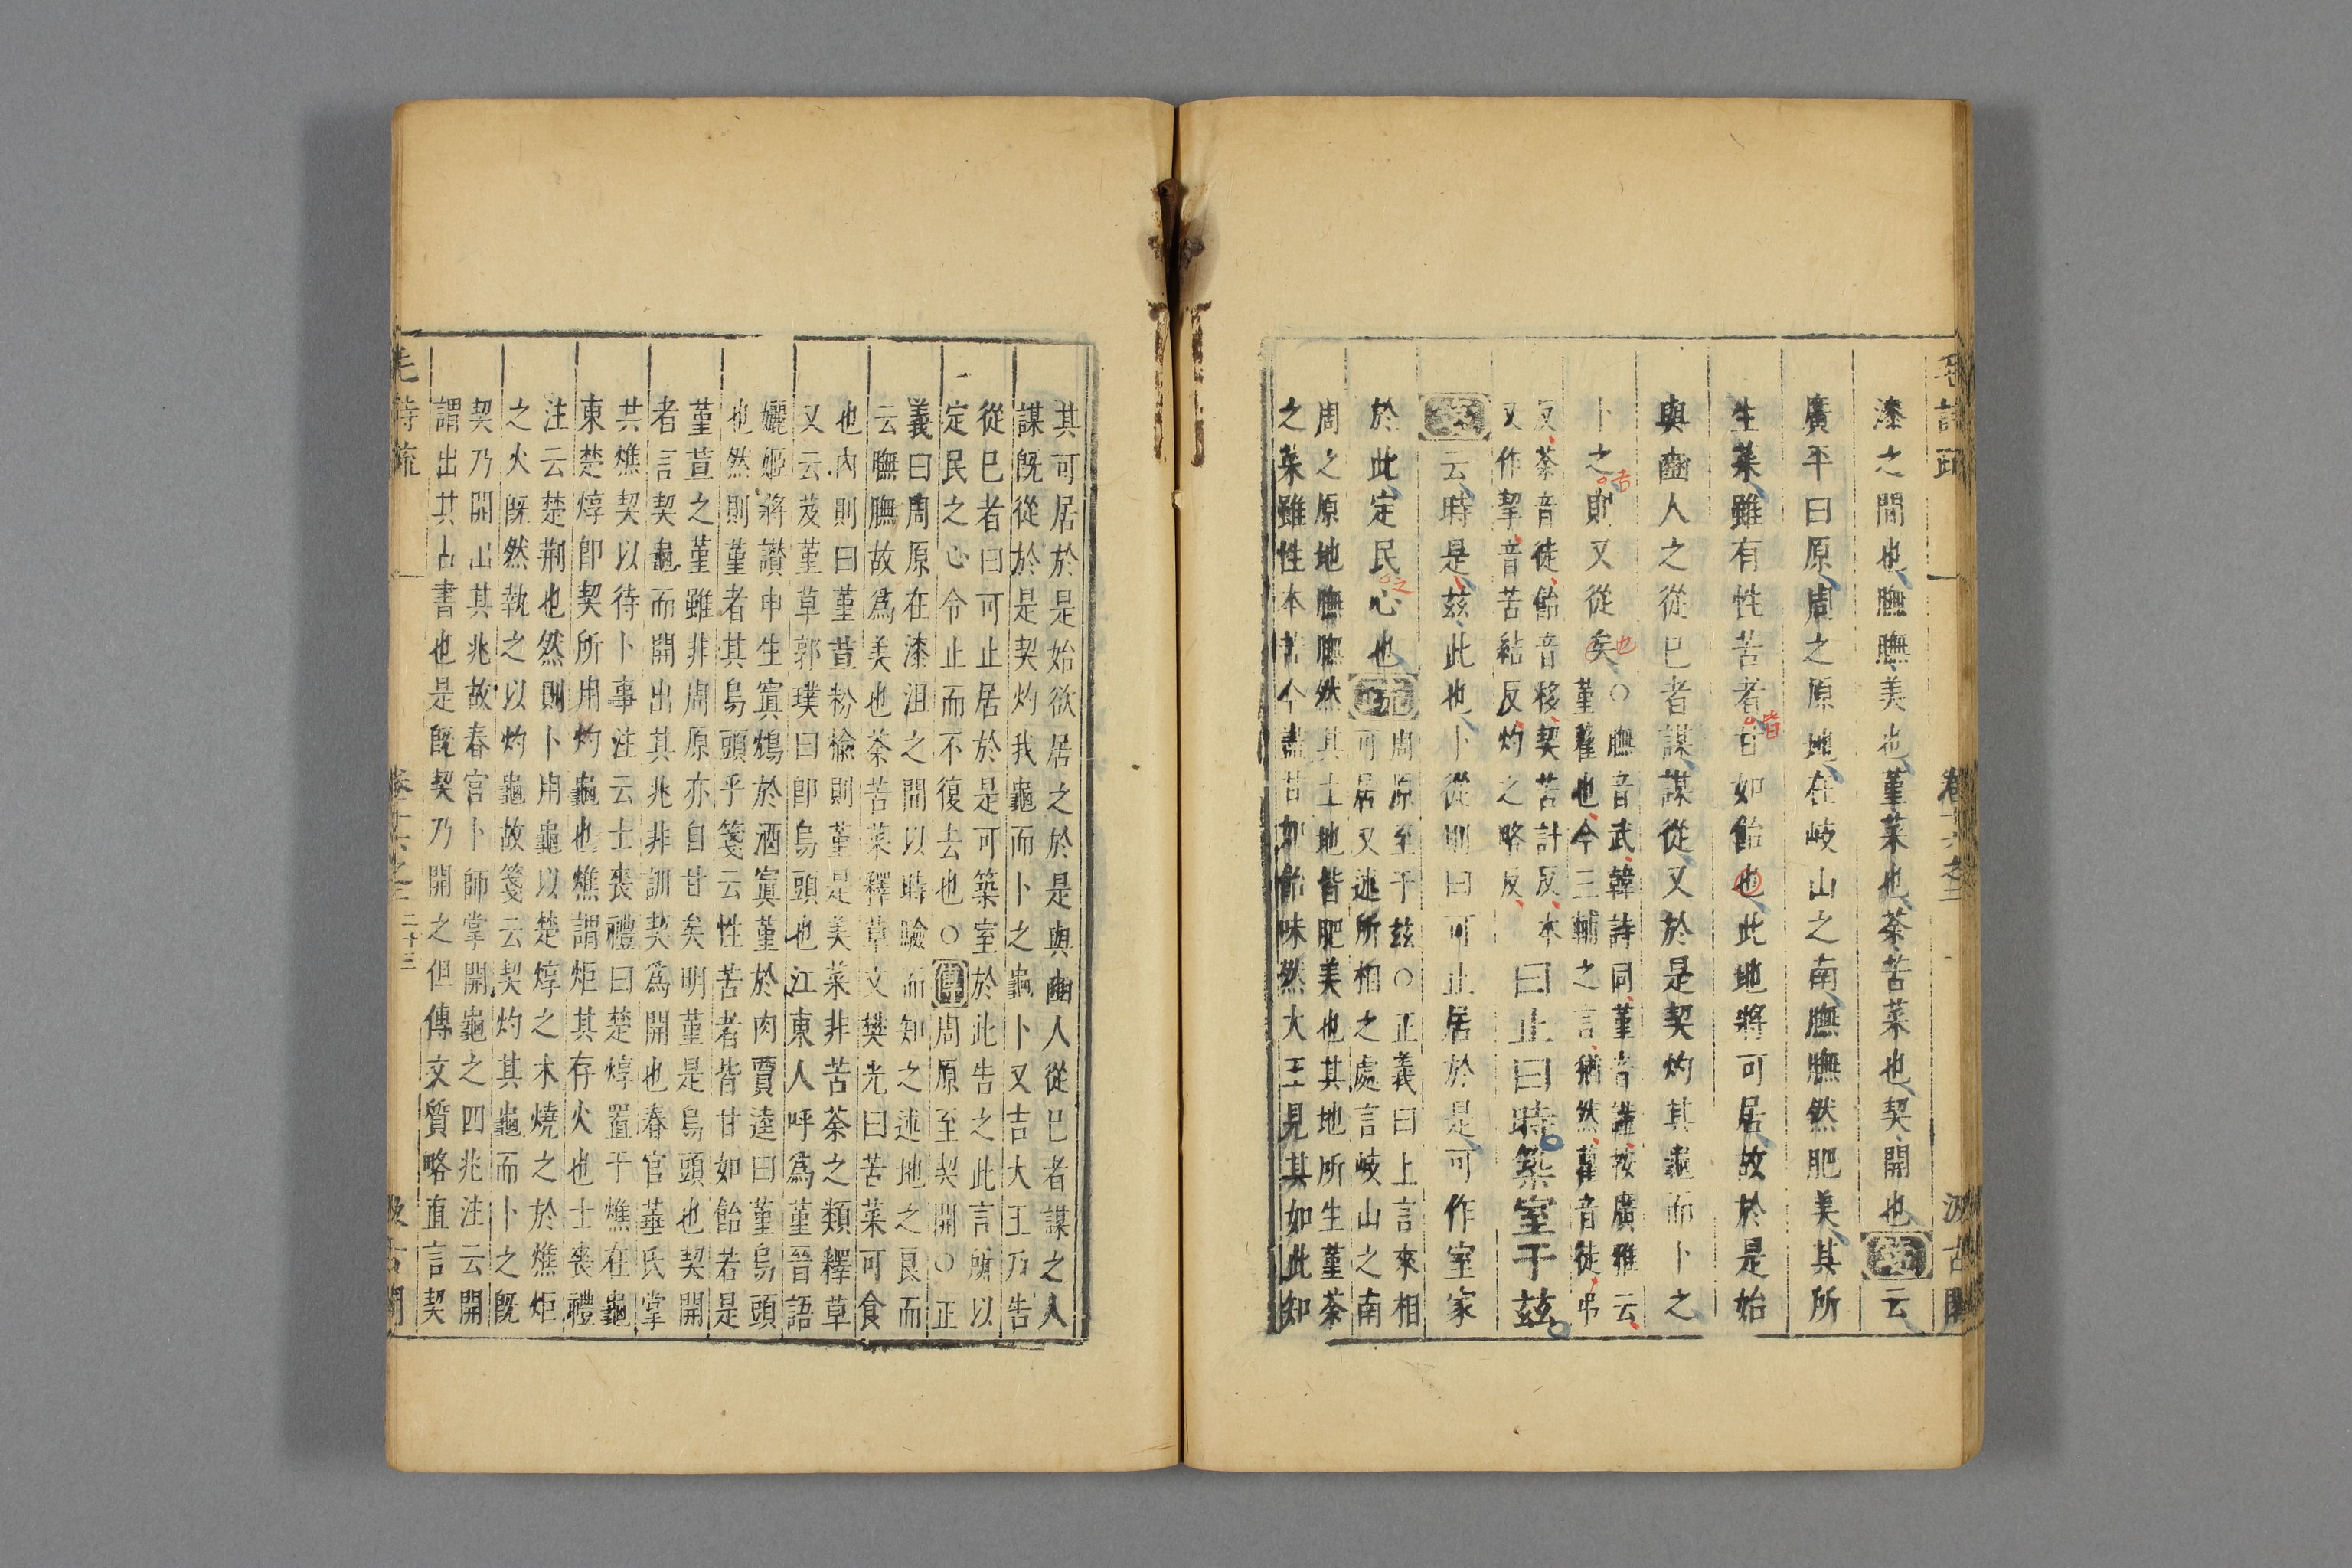 毛詩疏 卷十六之二 汲古閣
漆之間也膴膴美也菫菜也荼苦菜也契開也箋云
廣平曰原周之原地在岐山之南膴膴然肥美其所
生菜雖有性苦者皆甘如飴也此地將可居故於是始
與豳人之從已者謀謀從又於是契灼其龜而卜之
卜之吉則又從矣也○膴音武韓詩同菫音謹按廣雅云
菫藋也今三輔之言猶然藋音徒弔
反荼音徒飴音移契苦計反本
又作挈音苦結反灼之略反
曰止曰時築室于茲
箋云時是茲此也卜從則曰可止居於是可作室家
於此定民之心也疏周原至于茲○正義曰上言來相
可居又述所相之處言岐山之南
周之原地膴膴然其土地皆肥美也其地所生菫荼
之菜雖性本苦今盡甘如飴味然大王見其如此知
其可居於是始欲居之於是與豳人從已者謀之人
謀既從於是契灼我龜而卜之龜卜又吉大王乃告
從已者曰可止居於是可築室於此告之此言所以
定民之心令止而不復去也○傳周原至契開○正
義曰周原在漆沮之間以時驗而知之述地之良而
云膴膴故為美也荼苦菜釋草文樊光曰苦菜可食
也內則曰菫荁枌榆則菫是美菜非苦荼之類釋草
又云芨菫草郭璞曰即烏頭也江東人呼為菫晉語
孋姬將譖申生寘鴆於酒寘菫於肉賈逵曰菫烏頭
也然則菫者其烏頭乎箋云性苦者皆甘如飴若是
菫荁之菫雖非周原亦自甘矣明菫是烏頭也契開
者言契龜而開出其兆非訓契為開也春官菙氏掌
共燋契以待卜事注云士喪禮曰楚焞置于燋在龜
東楚焞即契所用灼龜也燋謂炬其存火也士喪禮
注云楚荊也然則卜用龜以楚焞之木燒之於燋炬
之火既然執之以灼龜故箋云契灼其龜而卜之既
契乃開出其兆故春官卜師掌開龜之四兆注云開
謂出其占書也是既契乃開之但傳文質略直言契
毛詩疏 卷十六之二 二十三 汲古閣